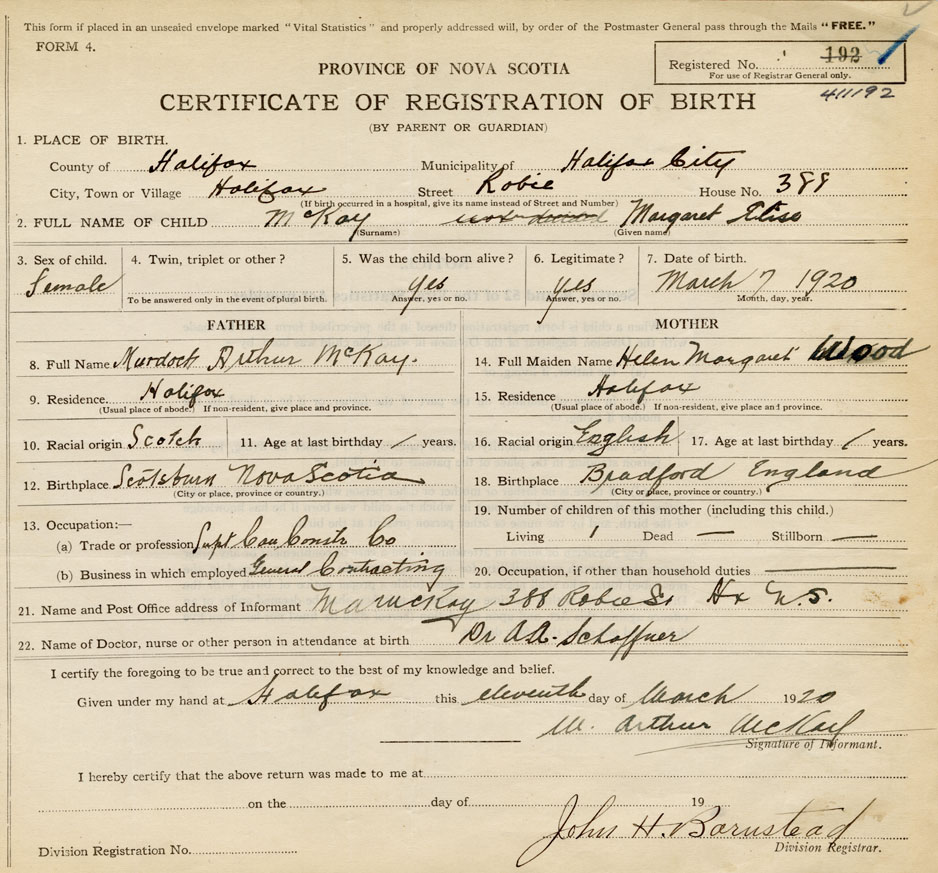 This form if placed in an unsealed envelope marked "Vital Statistics" and properly addressed will, by order of the Postmaster General pass through the Mails "FREE."
FORM 4.
Registered No. 192
For use of Registrar General only.
411192
PROVINCE OF NOVA SCOTIA
CERTIFICATE OF REGISTRATION OF BIRTH
(BY PARENT OR GUARDIAN)
1. PLACE OF BIRTH.
County of Halifax Municipality of Halifax City
City, Town or Village Halifax Street Robie House No. 388
(If birth occurred in a hospital, give its name instead of Street and Number)
2. FULL NAME OF CHILD McKay Margaret
(Surname) (Given name)
3. Sex of child. 4. Twin, triplet or other? 5. Was the child born alive? 6. Legitimate? 7. Date of birth.
Female Yes Yes March 7 1920
To be answered only in the event of plural birth. Answer, yes or no. Answer, yes or no. Month, day, year.
FATHER MOTHER
8. Full Name Murdock Arthur McKay. 14. Full Maiden Name Helen Margaret Wood
9. Residence. Halifax 15. Residence Halifax
(Usual place of abode.) If non-resident, give place and province. (Usual place of abode.) If non-resident, give place and province.
10. Racial origin Scotch 11. Age at last birthday / years. 16. Racial origin English 17. Age at last birthday / years.
12. Birthplace Scotsburn Nova Scotia 18. Birthplace Bradford England
(City or place, province or country.) (City or place, province or country.)
13. Occupation:— 19. Number of children of this mother (including this child.)
(a) Trade or profession Supt Constr Co Living 1 Dead — Stillborn —
(b) Business in which employed General Contracting 20. Occupation, if other than household duties —
21. Name and Post Office address of Informant McKay 388 Robie St Hx N.S.
22. Name of Doctor, nurse or other person in attendance at birth Dr A.A. Schaffner
I certify the foregoing to be true and correct to the best of my knowledge and belief.
Given under my hand at Halifax this eleventh day of March 1920
M. Arthur McKay
Signature of Informant.
I hereby certify that the above return was made to me at
on the day of 19
John H. Barnstead
Division Registration No. Division Registrar.